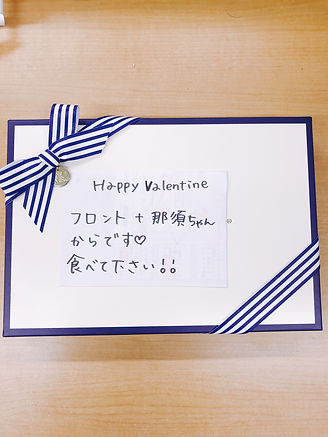 Happy Valentine
フロント + 那須ちゃん
からです♡
食べて下さい!!